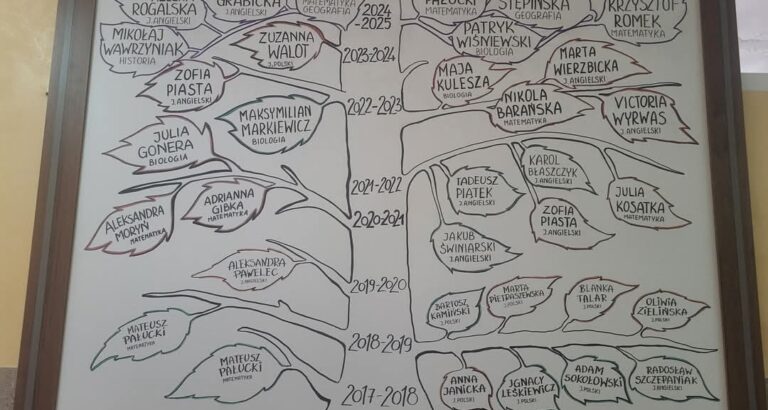 ROGALSKA
J.ANGIELSKI
GRABICKA
J.ANGIELSKI
MATEMATYKA
GEOGRAFIA
2024
-2025
PAŁUCKI
MATEMATYKA
STEPIŃSKA
GEOGRAFIA
KRZYSZTOF
ROMEK
MATEMATYKA
MIKOŁAJ
WAWRZYNIAK
HISTORIA
ZUZANNA
WALOT
J.POLSKI
2023-2024
PATRYK
WIŚNIEWSKI
BIOLOGIA
MARTA
WIERZBICKA
J.ANGIELSKI
ZOFIA
PIASTA
J.ANGIELSKI
MAJA
KULESZA
BIOLOGIA
MAKSYMILIAN
MARKIEWICZ
BIOLOGIA
2022-2023
NIKOLA
BARAŃSKA
MATEMATYKA
VICTORIA
WYRWAS
J.ANGIELSKI
JULIA
GONERA
BIOLOGIA
2021-2022
TADEUSZ
PIĄTEK
J.ANGIELSKI
KAROL
BŁASZCZYK
J.ANGIELSKI
JULIA
KOSATKA
MATEMATYKA
ALEKSANDRA
MORYŃ
MATEMATYKA
ADRIANNA
GIBKA
MATEMATYKA
2020-2021
ZOFIA
PIASTA
J.ANGIELSKI
JAKUB
ŚWINIARSKI
J.ANGIELSKI
ALEKSANDRA
PAWELEC
J.ANGIELSKI
2019-2020
BARTOSZ
KAMIŃSKI
J.POLSKI
MARTA
PIETRASZEWSKA
J.POLSKI
BLANKA
TALAR
J.POLSKI
OLIWIA
ZIELIŃSKA
J.POLSKI
MATEUSZ
PAŁUCKI
MATEMATYKA
2018-2019
MATEUSZ
PAŁUCKI
MATEMATYKA
2017-2018
ANNA
JANICKA
J.POLSKI
IGNACY
LEŚKIEWICZ
J.POLSKI
ADAM
SOKOŁOWSKI
J.POLSKI
RADOSŁAW
SZCZEPANIAK
J.ANGIELSKI